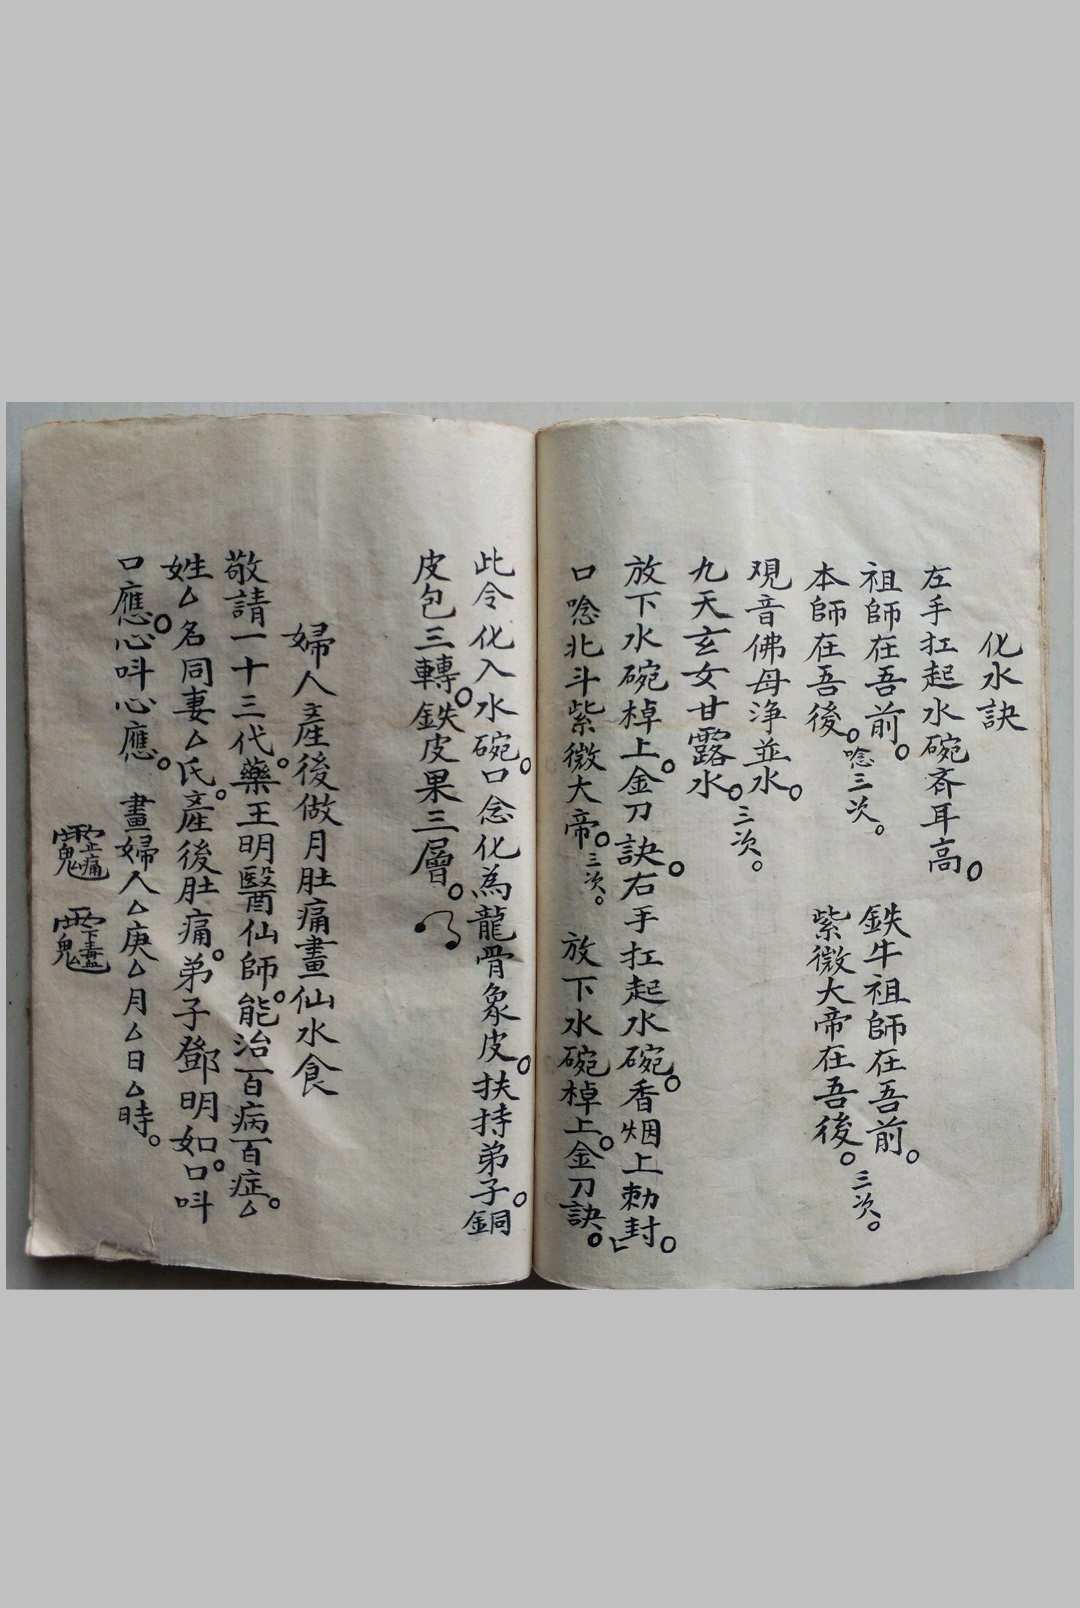 化水訣
左手扛起水碗斉耳高。
祖師在吾前。
本師在吾後。唸三次。
鉄牛祖師在吾前。
紫微大帝在吾後。三次。
观音佛母淨並水。
九天玄女甘露水。三次。
放下水碗棹上。金刀訣。右手扛起水碗。香烟上勅封。
口唸北斗紫微大帝。三次。 放下水碗棹上。金刀訣。
此令化入水碗。口念化為龍骨象皮。扶持弟子。銅
皮包三轉。鉄皮果三層。
婦人產後做月肚痛畫仙水食
敬請一十三代。藥王明醫仙師。能治百病百症。△
姓△名同妻△氏。產後肚痛。弟子鄧明如。口呌
口應。心呌心應。 畫婦人△庚△月△日△時。